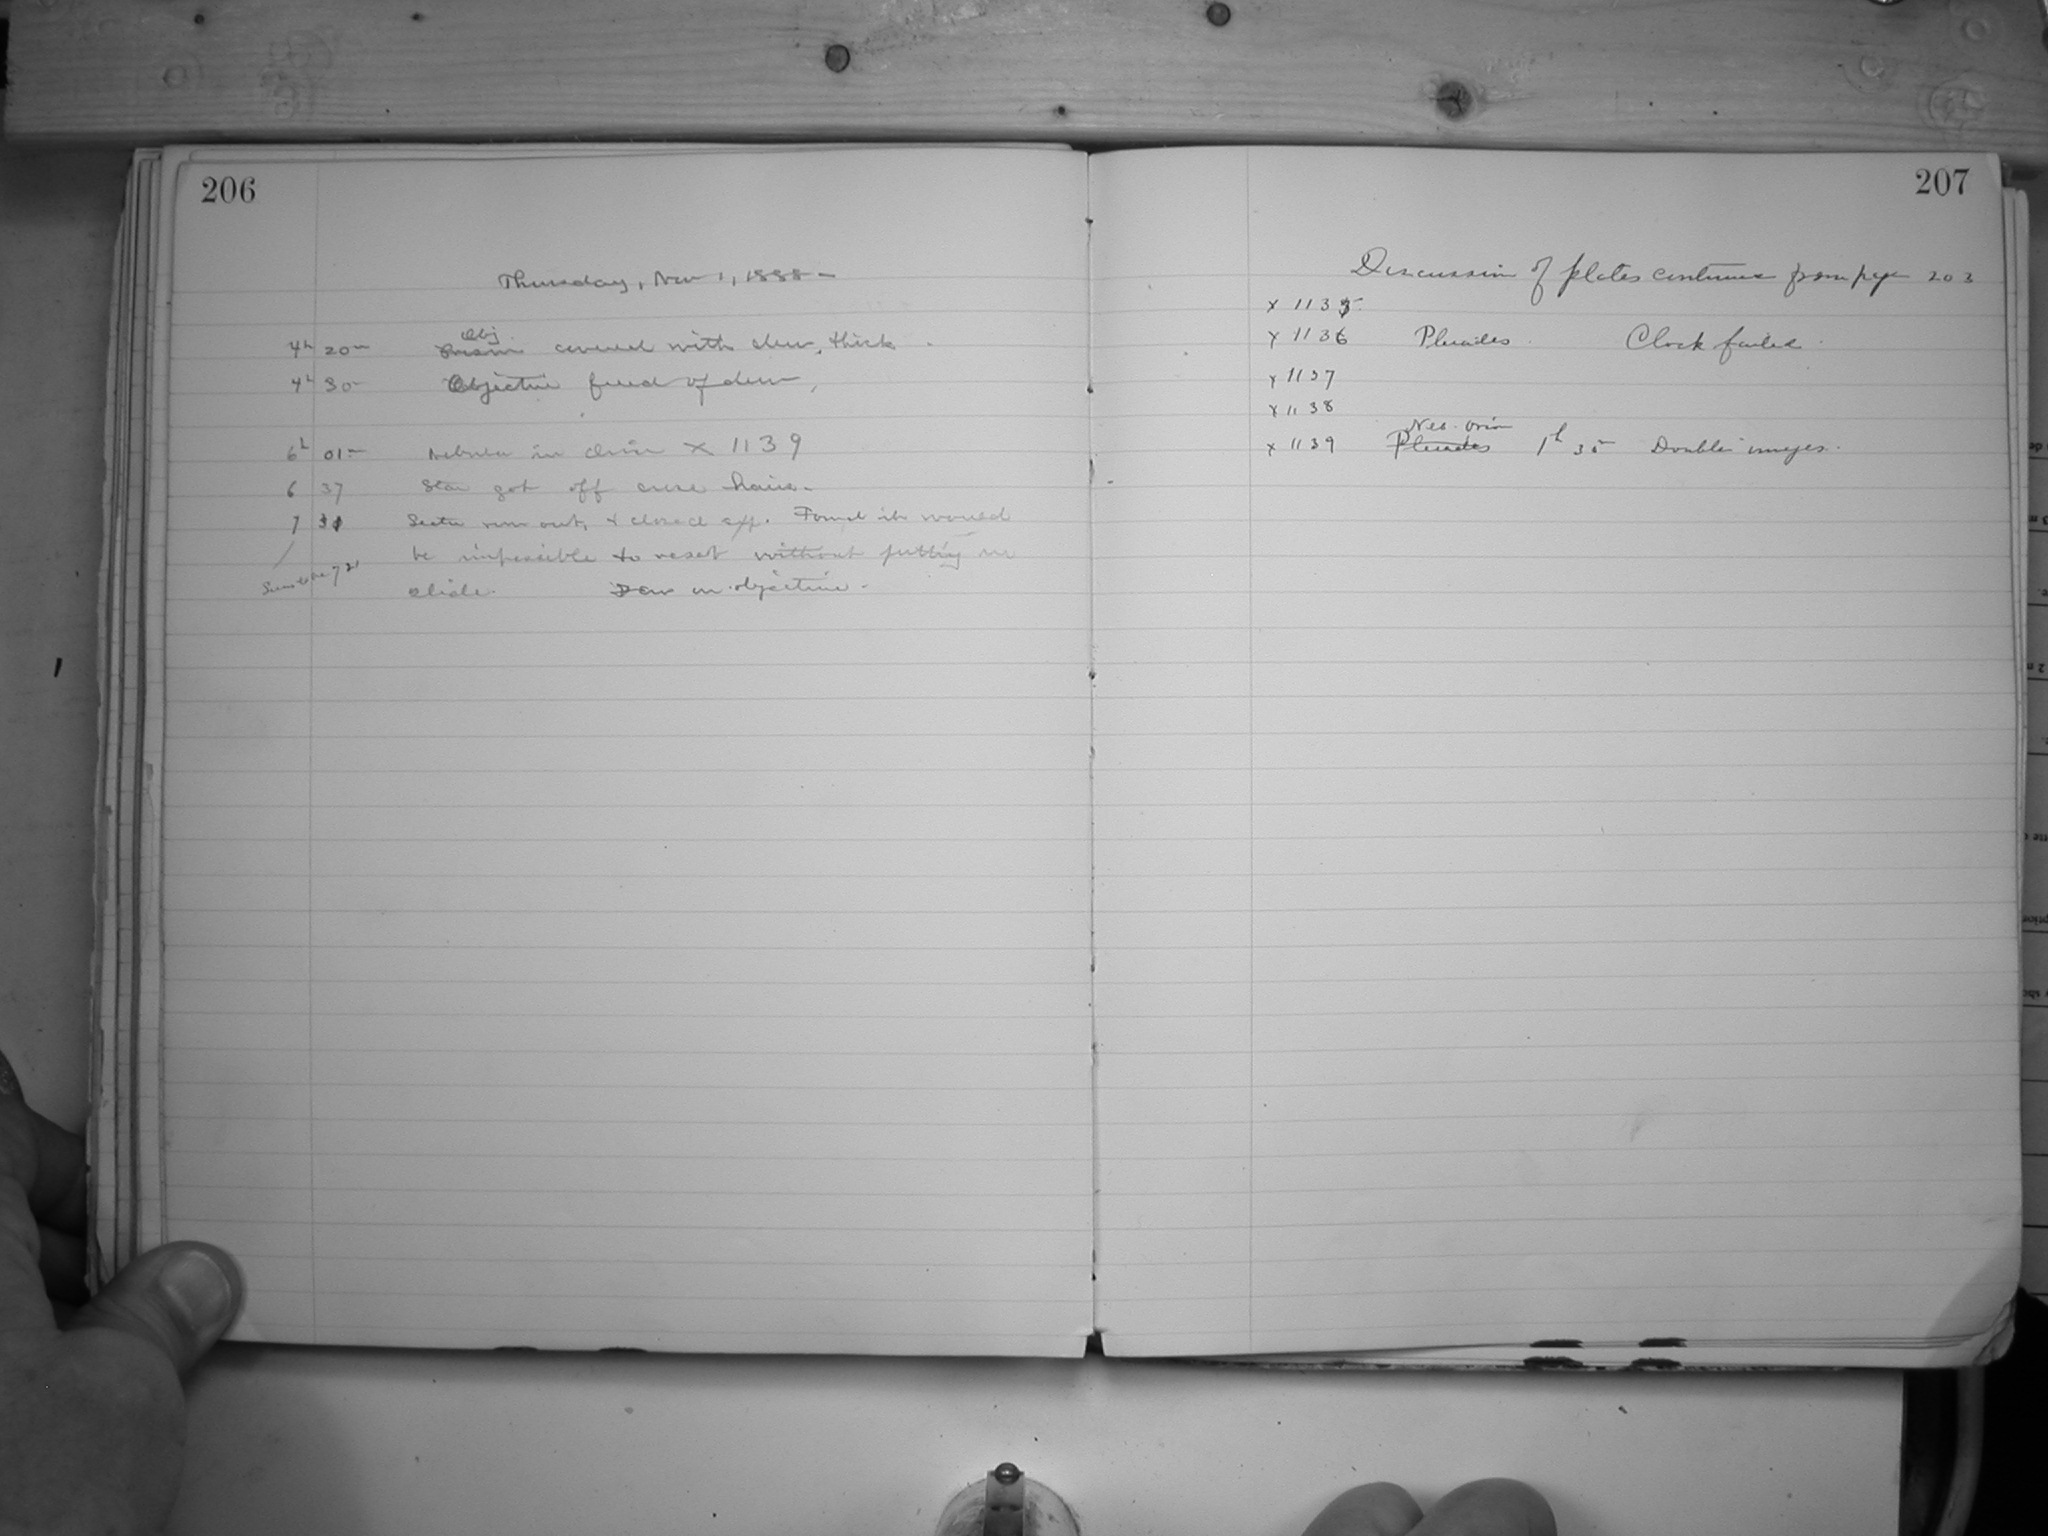 206
Thursday, Nov 1, 1888 -
Obj
4h 20m Prism covered with dew, thick.
4h 30m Objective freed of dew,
6h 01m Nebula in Orion X 1139
6 37 Star got off cross hairs.
7 31 Sector run out, & closed exp. Found it would
be impossible to reset without putting in
7 21
slide. Dew on objective.
207
Discussion of plates continued from page 203
X 1135
X 1136 Pleiades. Clock failed.
X 1137
X 1138
Neb. Orion
X 1139 Pleiades 1h 35m Double images.